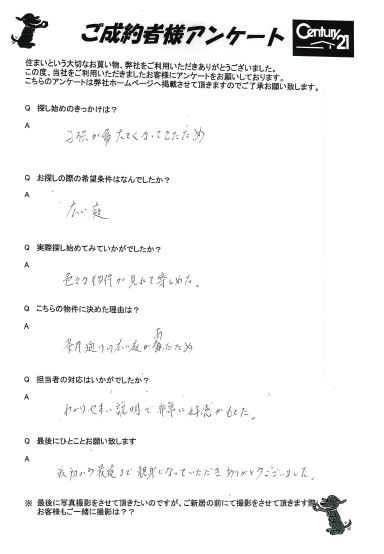 ご成約者様アンケート
Century 21
住まいという大切なお買い物、弊社をご利用いただきありがとうございました。
この度、当社をご利用いただきましたお客様にアンケートをお願いしております。
こちらのアンケートは弊社ホームページへ掲載させて頂きますのでご了承お願い致します。
Q 探し始めのきっかけは？
A
子供が大きくなってきたため
Q お探しの際の希望条件はなんでしたか？
A
広い庭
Q 実際探し始めてみていかがでしたか？
A
色々な物件が見れて楽しめた。
Q こちらの物件に決めた理由は？
A
条件通りの広い庭が有ったため
Q 担当者の対応はいかがでしたか？
A
わかりやすい説明で非常に好感がもてた。
Q 最後にひとことお願い致します
A
最初から最後まで親身になっていただきありがとうございました。
※ 最後に写真撮影をさせて頂きたいのですが、ご新居の前にて撮影をさせて頂きます際、
お客様もご一緒に撮影は？？